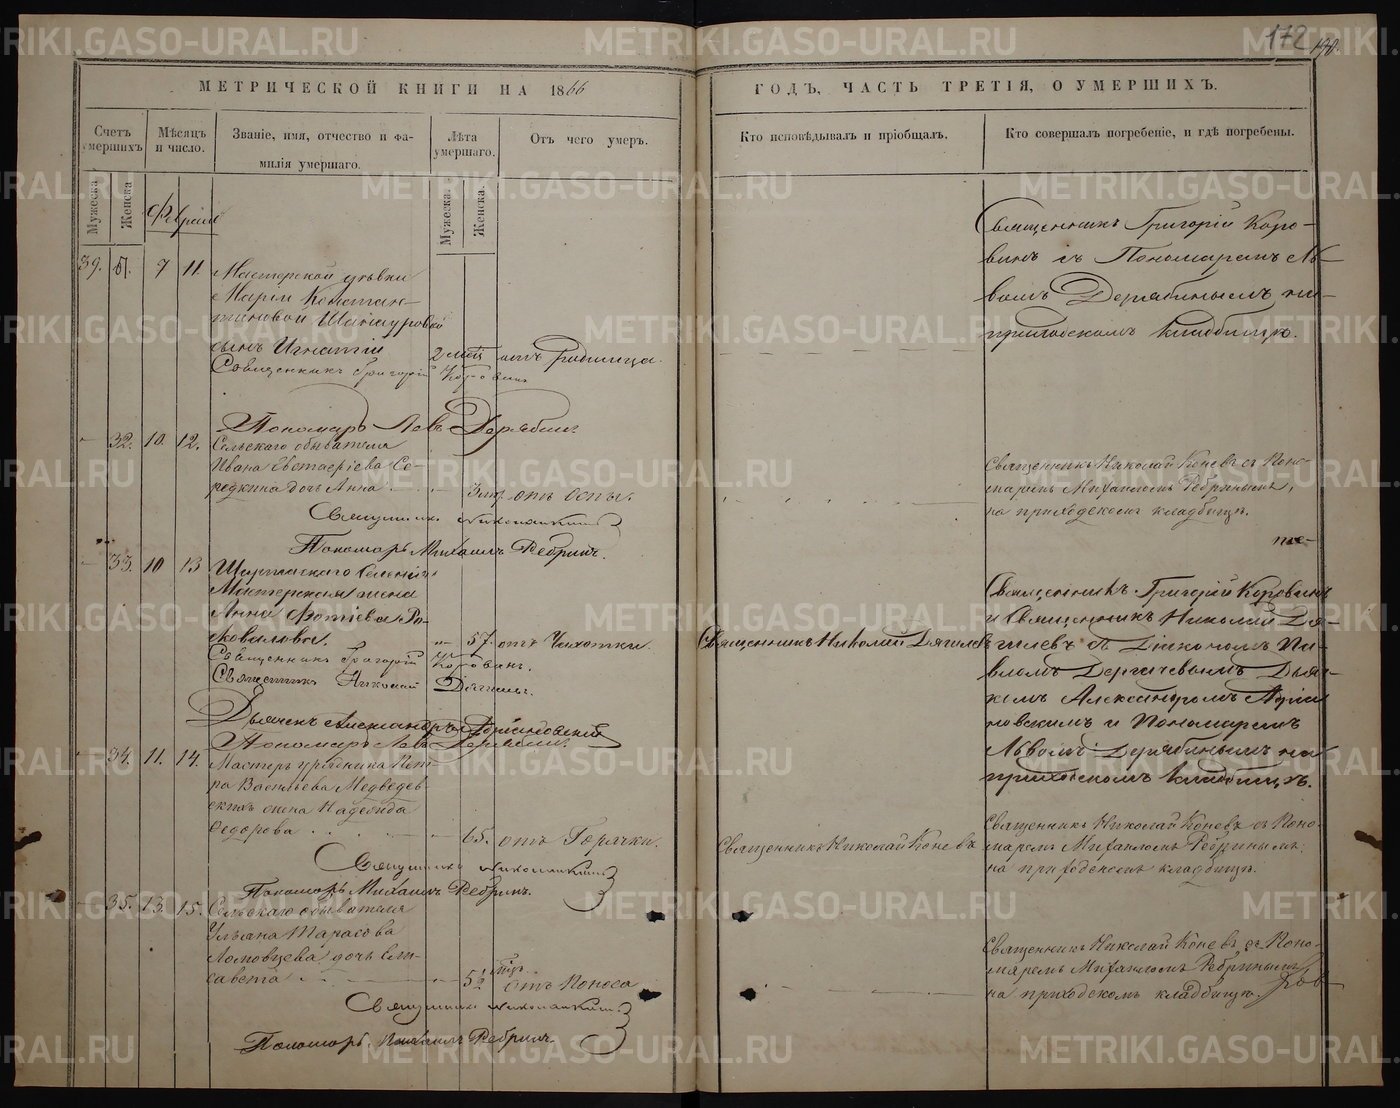 172
МЕТРИЧЕСКОЙ КНИГИ НА 1866
ГОДЪ, ЧАСТЬ ТРЕТІЯ, О УМЕРШИХЪ.
Счетъ умершихъ.
Мѣсяцъ и число.
Званіе, имя, отчество и фамилія умершаго.
Лѣта умершаго.
Отъ чего умеръ.
Кто исповѣдывалъ и пріобщалъ.
Кто совершалъ погребеніе, и гдѣ погребены.
Мужеска
Женска
Мужеска.
Женска.
Февраль
39. 9 11. Мастерской дѣвки
Маріи Констан-
тиновой
сынъ Игнатій 2 лѣтъ отъ Родимца.
Священникъ Григорій Коровинъ
Пономарь Левъ Дерябинъ
Священникъ Григорій Коро-
винъ съ Пономаремъ Ль-
вомъ Дерябинымъ на
приходскомъ кладбищѣ.
32. 10. 12. Сельскаго обывателя
Ивана Евстафіева Се-
редкина дочь Анна отъ Оспы.
Священникъ
Пономарь Михаилъ Ребринъ.
Священникъ Николай Коневъ съ Поно-
маремъ Михаиломъ Ребринымъ,
на приходскомъ кладбищѣ.
33. 10 13 Шарташскаго селенія
Мастерскаго жена
Анна Фотіева Ро-
ковалова. 57. отъ Чахотки.
Священникъ Григорій Коровинъ.
Священникъ Николай Дягилевъ.
Дьячекъ Александръ Адріановскій
Пономарь Левъ Дерябинъ.
Священникъ Николай Дягилевъ
Священникъ Григорій Коровинъ
и Священникъ Николай Дя-
гилевъ съ Діакономъ Па-
вломъ Дергачевымъ Дьяч-
комъ Александромъ Адріа-
новскимъ и Пономаремъ
Львомъ Дерябинымъ на
приходскомъ кладбищѣ.
34. 11. 14. Мастеръ урядника Пет-
ра Васильева Медведев-
скихъ жена Надежда
Федорова 65. отъ Горячки.
Священникъ
Пономарь Михаилъ Ребринъ.
Священникъ Николай Коневъ
Священникъ Николай Коневъ съ Поно-
маремъ Михаиломъ Ребринымъ,
на приходскомъ кладбищѣ.
35. 13. 15. Сельскаго обывателя
Ульяна Тарасова
Ломовцева дочь Ели-
савета 5½ отъ Поноса
Священникъ
Пономарь Михаилъ Ребринъ.
Священникъ Николай Коневъ съ Поно-
маремъ Михаиломъ Ребринымъ
на приходскомъ кладбищѣ.
METRIKI.GASO-URAL.RU